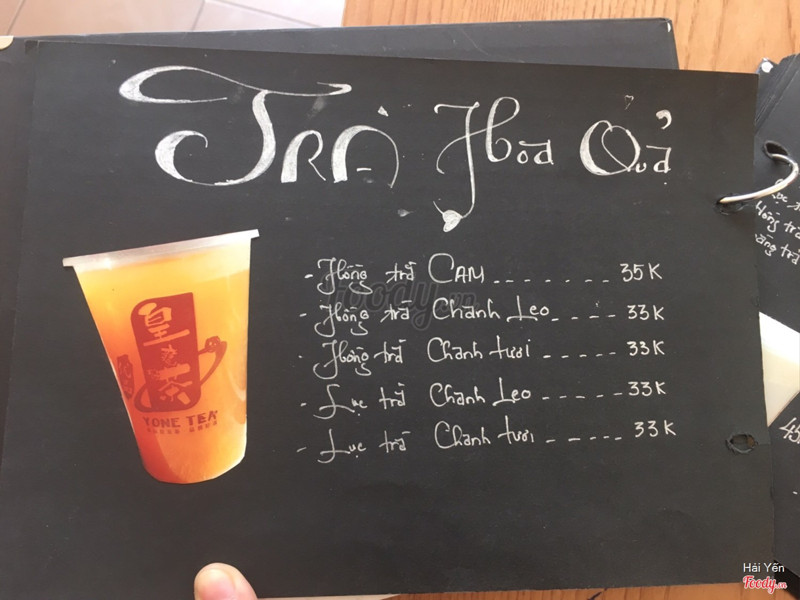 Trà Hoa Quả
- Hồng trà CAM ....... 35K
- Hồng trà Chanh Leo ..... 33K
- Hồng trà Chanh tươi ..... 33K
- Lục trà Chanh Leo ..... 33K
- Lục trà Chanh tươi ..... 33K
皇茶
YONE TEA
Foody.vn
Hồng trà
trà
45
Hải Yến
Foody.vn